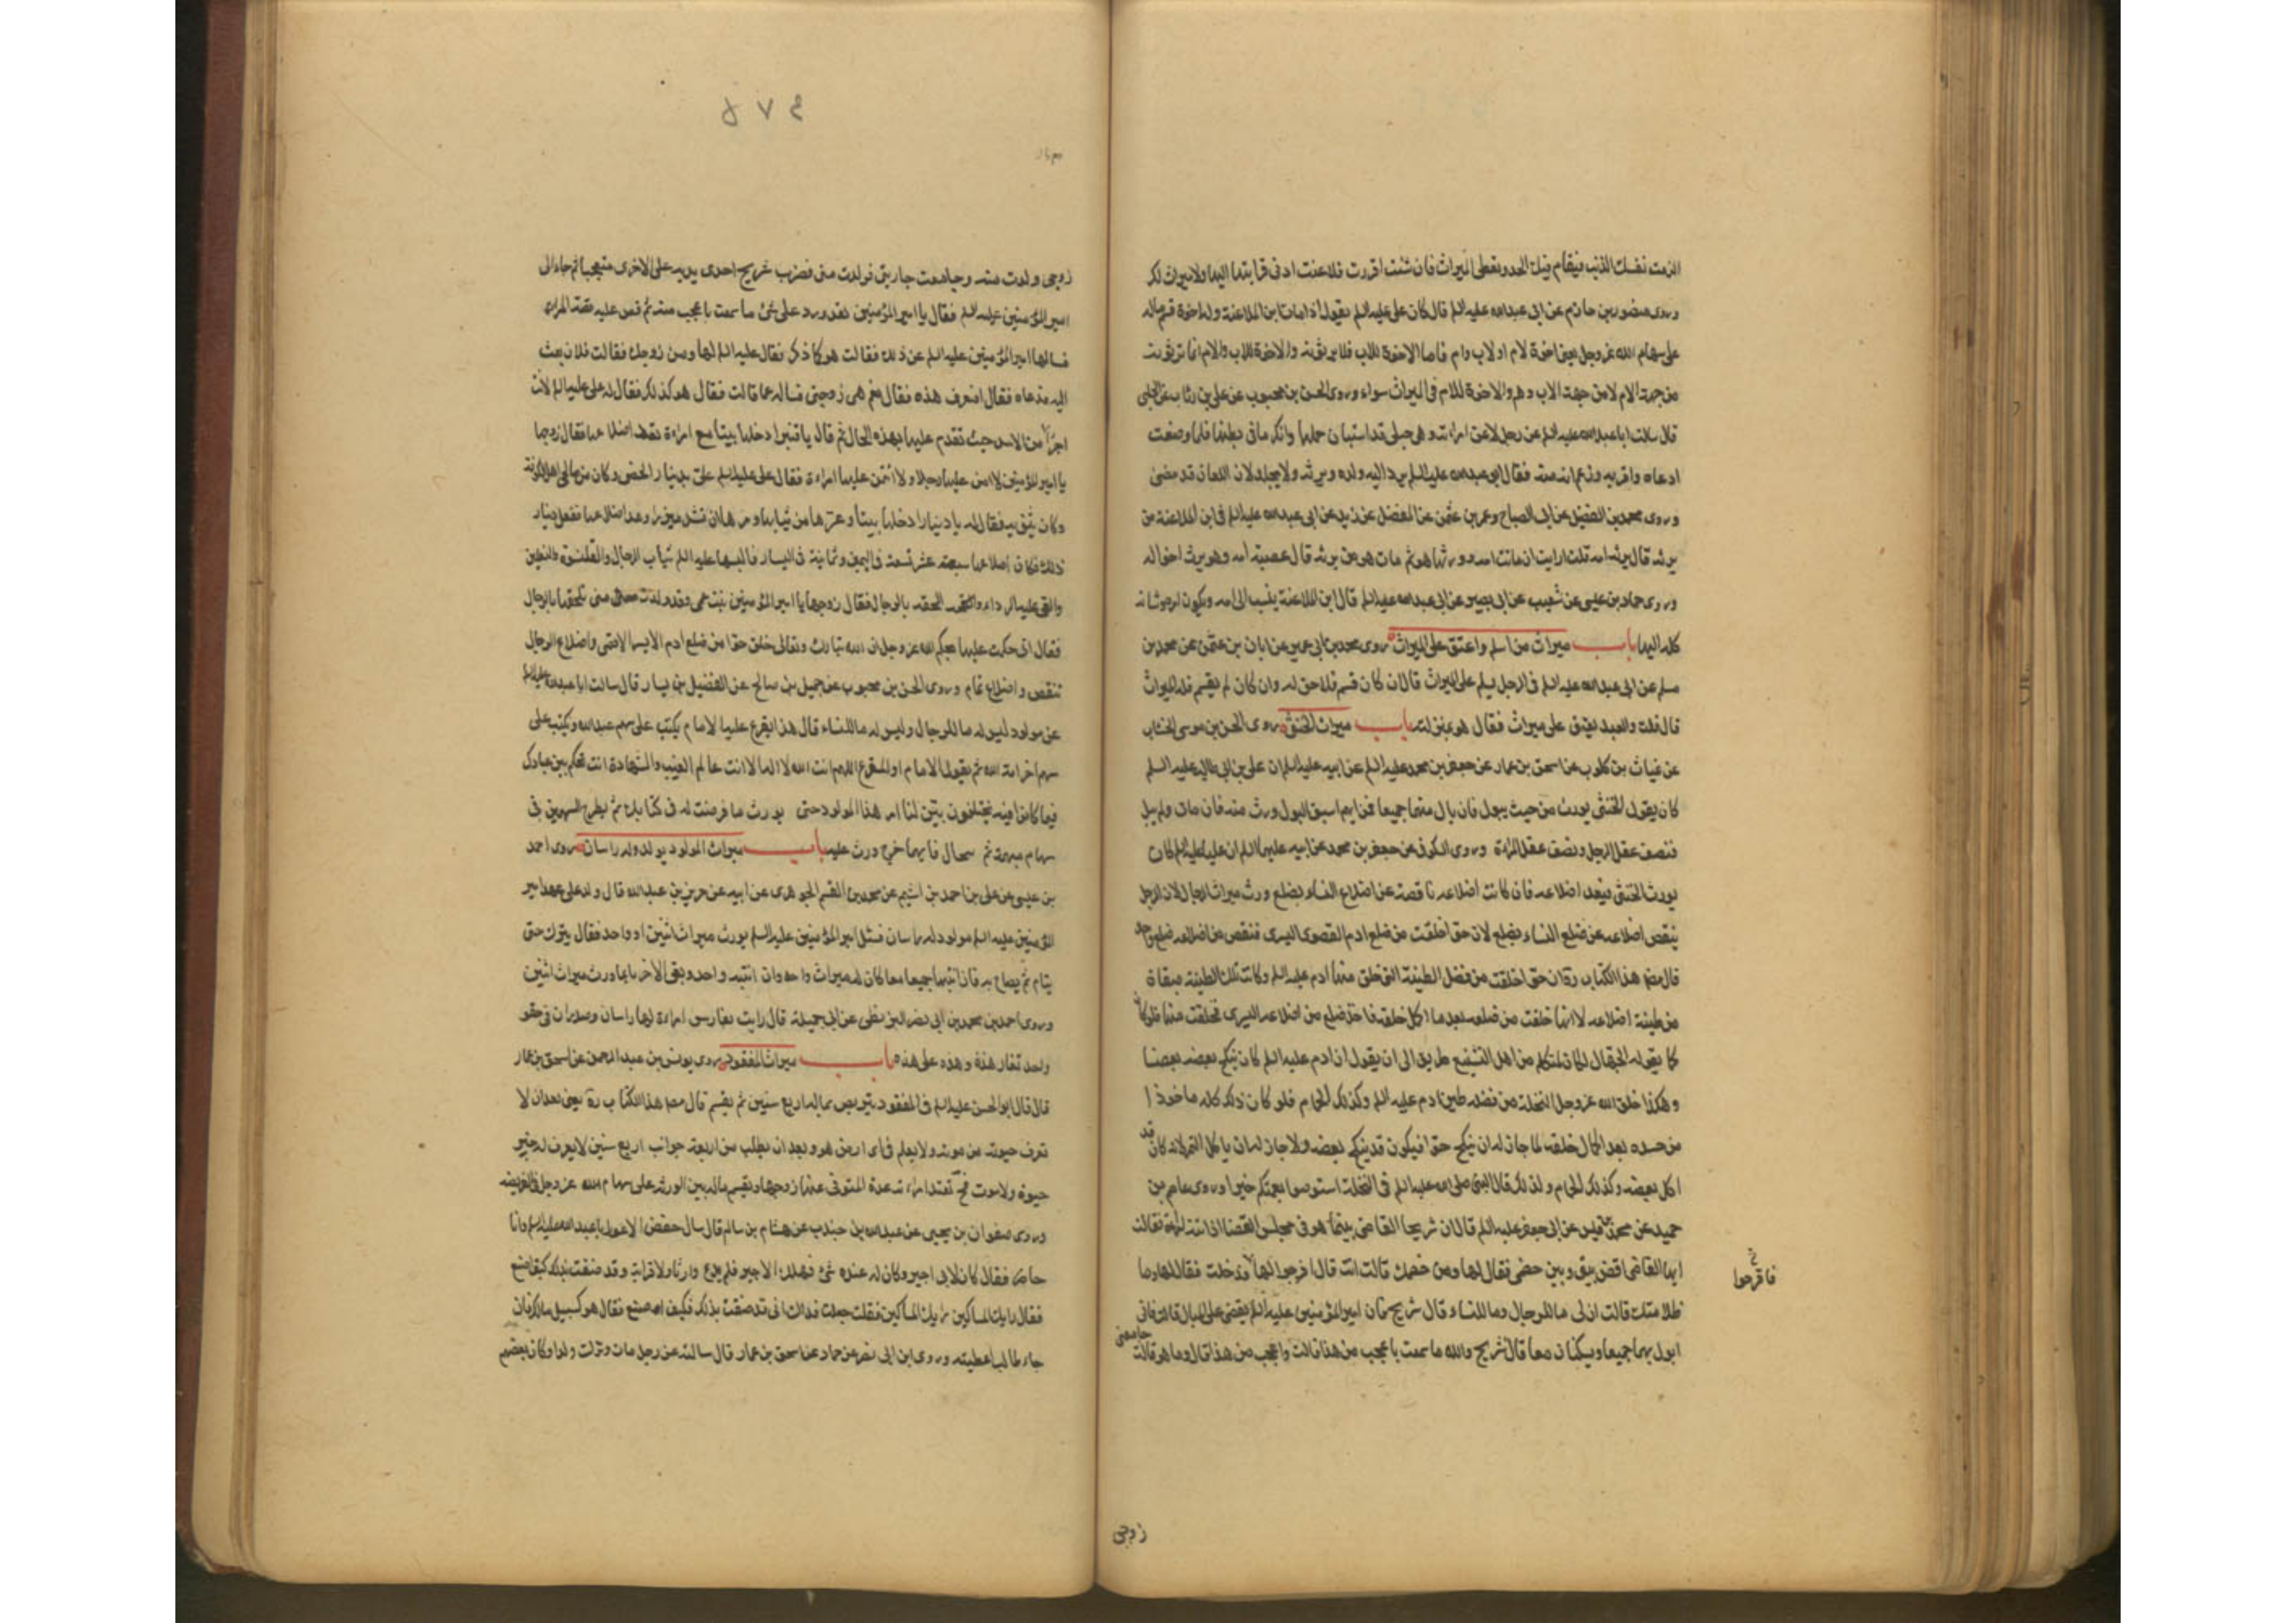 الزمت نفسك الذنب فيقام فيك الحد ونعطى الميراث فان شئت اقررت فلاعنت ادنى قرابتها اليها ولا ميراث لك
وروى منصور بن حازم عن ابى عبدالله عليه السلم قال كان على عليه السلم يقول اذا مات ابن الملاعنة وله اخوة قسم ماله
على سهام الله عز وجل يعنى اخوة لام او لاب وام فاما الاخوة للاب فلا يرثونه والاخوة للاب والام انما يرثونه
من جهة الام لا من جهة الاب وهم والاخوة للام فى الميراث سواء وروى الحسن بن محبوب عن على بن رئاب عن الحلبى
قال سالت ابا عبدالله عليه السلم عن رجل لاعن امراته وهى حبلى قد استبان حملها وانكر ما فى بطنها فلما وضعت
ادعاه واقر به وزعم انه منه فقال ابو عبدالله عليه السلم يرد اليه ولده ويرثه ولا يجلد لان اللعان قد مضى
وروى محمد بن الفضيل عن ابى الصباح وعمرو بن عثمن عن المفضل عن زيد عن ابى عبدالله عليه السلم فى ابن الملاعنة من
يرثه قال يرثه امه قلت ارايت ان ماتت امه وورثها هو ثم مات هو من يرثه قال عصبة امه وهو يرث اخواله
وروى حماد بن عيسى عن شعيب عن ابى بصير عن ابى عبدالله عليه السلم قال ابن الملاعنة ينسب الى امه ويكون امره وشانه
كله اليها باب ميراث من اسلم واعتق على الميراث روى محمد بن ابى عمير عن ابان بن عثمن عن محمد بن
مسلم عن ابى عبدالله عليه السلم فى الرجل يسلم على الميراث قال ان كان قسم فلا حق له وان كان لم يقسم فله الميراث
قال قلت والعبد يعتق على ميراث فقال هو بمنزلته باب ميراث الخنثى روى الحسن بن موسى الخشاب
عن غياث بن كلوب عن اسحق بن عمار عن جعفر بن محمد عليه السلم عن ابيه عليه السلم ان على بن ابى طالب عليه السلم
كان يقول الخنثى يورث من حيث يبول فان بال منهما جميعا فمن ايهما سبق البول ورث منه فان مات ولم يبل
فنصف عقل الرجل ونصف عقل المراة وروى السكونى عن جعفر بن محمد عن ابيه عليهما السلم ان عليا عليه السلم كان
يورث الخنثى فيعد اضلاعه فان كانت اضلاعه ناقصة عن اضلاع النساء بضلع ورث ميراث الرجال لان الرجل
ينقص اضلاعه عن ضلع النساء بضلع لان حوا خلقت من ضلع ادم القصوى اليسرى فنقص من اضلاعه ضلع واحد
قال مصنف هذا الكتاب ره ان حوا خلقت من فضل الطينة التى خلق منها ادم عليه السلم وكانت تلك الطينة مبقاة
من طينة اضلاعه لا انها خلقت من ضلعه بعد ما اكمل خلقه فاخذ ضلع من اضلاعه اليسرى فخلقت منها فلو كان
كما يقوله الجهال لكان لمتكلم من اهل التشنيع طريق الى ان يقول ان ادم عليه السلم كان ينكح بعضه بعضا
وهكذا خلق الله عز وجل النخلة من فضله طين ادم عليه السلم وكذلك الحمام فلو كان ذلك كله ماخوذا
من جسده بعد اكمال خلقه لما جاز له ان ينكح حوا فيكون قد ينكح بعضه ولا جاز له ان ياكل التمر لانه كان قد
اكل بعضه وكذلك الحمام ولذلك قال النبى صلى الله عليه السلم فى النخلة استوصوا بعمتكم خيرا وروى عاصم بن
حميد عن محمد بن قيس عن ابى جعفر عليه السلم قال ان شريحا القاضى بينما هو فى مجلس القضا اذ اتته امراة فقالت
ايها القاضى اقض بينى وبين خصمى فقال لها ومن خصمك قالت انت قال افرجوا لها فدخلت فقال لها وما
فافرجوا
ظلامتك قالت ان لى ما للرجال وما للنساء قال شريح فان امير المؤمنين عليه السلم يقضى على المبال قالت فانى
ابول بهما جميعا ويسكنان معا قال شريح والله ما سمعت باعجب من هذا قالت واعجب من هذا قال وما هو قالت جامعنى
زوجى
٤٧٥
زوجى وولدت منه وجامعت جاريتى فولدت منى فضرب شريح احدى يديه على الاخرى متعجبا ثم جاء الى
امير المؤمنين عليه السلم فقال يا امير المؤمنين لقد ورد على شئ ما سمعت باعجب منه ثم قص عليه قصة المراة
فسالها امير المؤمنين عليه السلم عن ذلك فقالت هو كما ذكر فقال عليه السلم لها ومن زوجك فقالت فلان فبعث
اليه فدعاه فقال اتعرف هذه فقال نعم هى زوجتى فساله عما قالت فقال هو كذلك فقال له على عليه السلم لانت
اجرأ من الاسد حيث تقدم عليها بهذه الحال ثم قال يا قنبر ادخلها بيتا مع امراة تعد اضلاعها فقال زوجها
يا امير المؤمنين لا امن عليها رجلا ولا ائتمن عليها امراة فقال على عليه السلم على بدينار الخصى وكان من صالحى اهل الكوفة
وكان يثق به فقال له يا دينار ادخلها بيتا وعرها من ثيابها ومرها ان تشد ميزرا وعد اضلاعها ففعل دينار
ذلك فكان اضلاعها سبعة عشر تسعة فى اليمين وثمانية فى اليسار فالبسها عليه السلم ثياب الرجال والقلنسوة والنعلين
والقى عليه الرداء والحقه بالرجال فقال زوجها يا امير المؤمنين بنت عمى وقد ولدت منى تلحقها بالرجال
فقال انى حكمت عليها بحكم الله عز وجل ان الله تبارك وتعالى خلق حوا من ضلع ادم الايسر الاقصى واضلاع الرجال
تنقص واضلاع تمام وروى الحسن بن محبوب عن جميل بن صالح عن الفضيل بن يسار قال سالت ابا عبدالله عليه السلم
عن مولود ليس له ما للرجال وليس له ما للنساء قال هذا يقرع عليه الامام يكتب على سهم عبدالله ويكتب على
سهم اخر امة الله ثم يقول الامام او المقرع اللهم انت الله لا اله الا انت عالم الغيب والشهادة انت تحكم بين عبادك
فيما كانوا فيه يختلفون بين لنا امر هذا المولود حتى يورث ما فرضت له فى كتابك ثم يطرح السهمين فى
سهام مبهمة ثم تجال فايهما خرج ورث عليه باب ميراث المولود يولد وله راسان روى احمد
بن عيسى عن على بن احمد بن اشيم عن محمد بن القسم الجوهرى عن ابيه عن حريز بن عبدالله قال ولد على عهد امير
المؤمنين عليه السلم مولود له راسان فسئل امير المؤمنين عليه السلم يورث ميراث اثنين او واحد فقال يترك حتى
ينام ثم يصاح به فان انتبها جميعا معا كان له ميراث واحد وان انتبه واحد وبقى الاخر نائما ورث ميراث اثنين
وروى احمد بن محمد بن ابى نصر البزنطى عن ابى جميلة قال رايت بفارس امراة لها راسان وصدران فى حقو
واحد تغار هذة وهذه على هذه باب ميراث المفقود روى يونس بن عبد الرحمن عن اسحق بن عمار
قال قال ابو الحسن عليه السلم فى المفقود يتربص بماله اربع سنين ثم يقسم قال مصنف هذا الكتاب ره يعنى بعد ان لا
تعرف حيوته من موته ولا يعلم فى اى ارض هو وبعد ان يطلب من اربعة جوانب اربع سنين لا يعرف له خبر
حيوة ولا موت فح تعتد امراته عدة المتوفى عنها زوجها ويقسم ماله بين الورثة على سهام الله عز وجل والفريضة
وروى صفوان بن يحيى عن عبدالله بن جندب عن هشام بن سالم قال سال حفص الاعور ابا عبدالله عليه السلم وانا
حاضر فقال كان لابى اجير وكان له عنده شئ فهلك الاجير فلم يدع وارثا ولا قرابة وقد ضقت بذلك كيف اصنع
فقال رايك المساكين رايك المساكين فقلت جعلت فداك انى قد ضقت بذلك فكيف اصنع فقال هو كسبيل مالك فان
جاء طالب اعطيته وروى ابن ابى نصر عن حماد عن اسحق بن عمار قال سالته عن رجل مات وترك ولدا وكان بعضهم